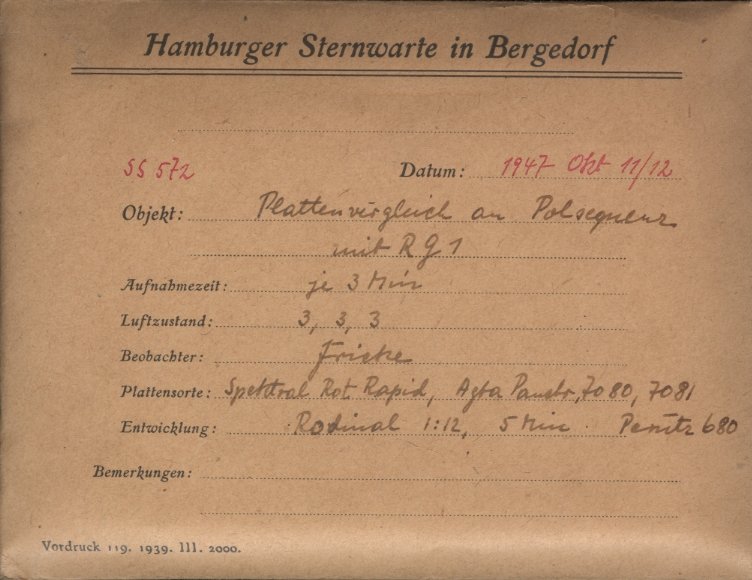 Hamburger Sternwarte in Bergedorf
SS 572 Datum: 1947 Okt 11/12
Objekt: Plattenvergleich an Polsequenz
mit RG1
Aufnahmezeit: je 3 Min
Luftzustand: 3, 3, 3
Beobachter: Fricke
Plattensorte: Spektral Rot Rapid, Agfa Panchr, 7080, 7081
Entwicklung: Rodinal 1:12, 5 Min Perutz 680
Bemerkungen:
Vordruck 119. 1939. III. 2000.